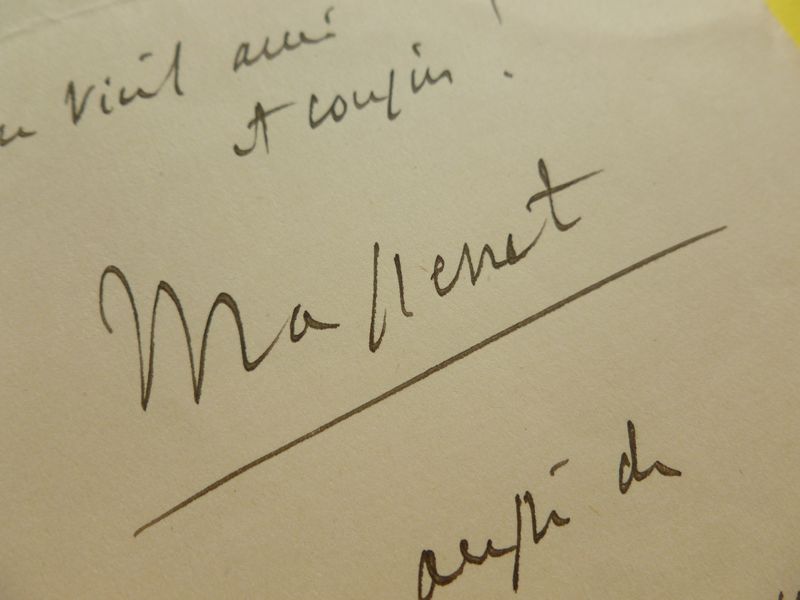 vieil ami
et cousin.
Massenet
aussi de